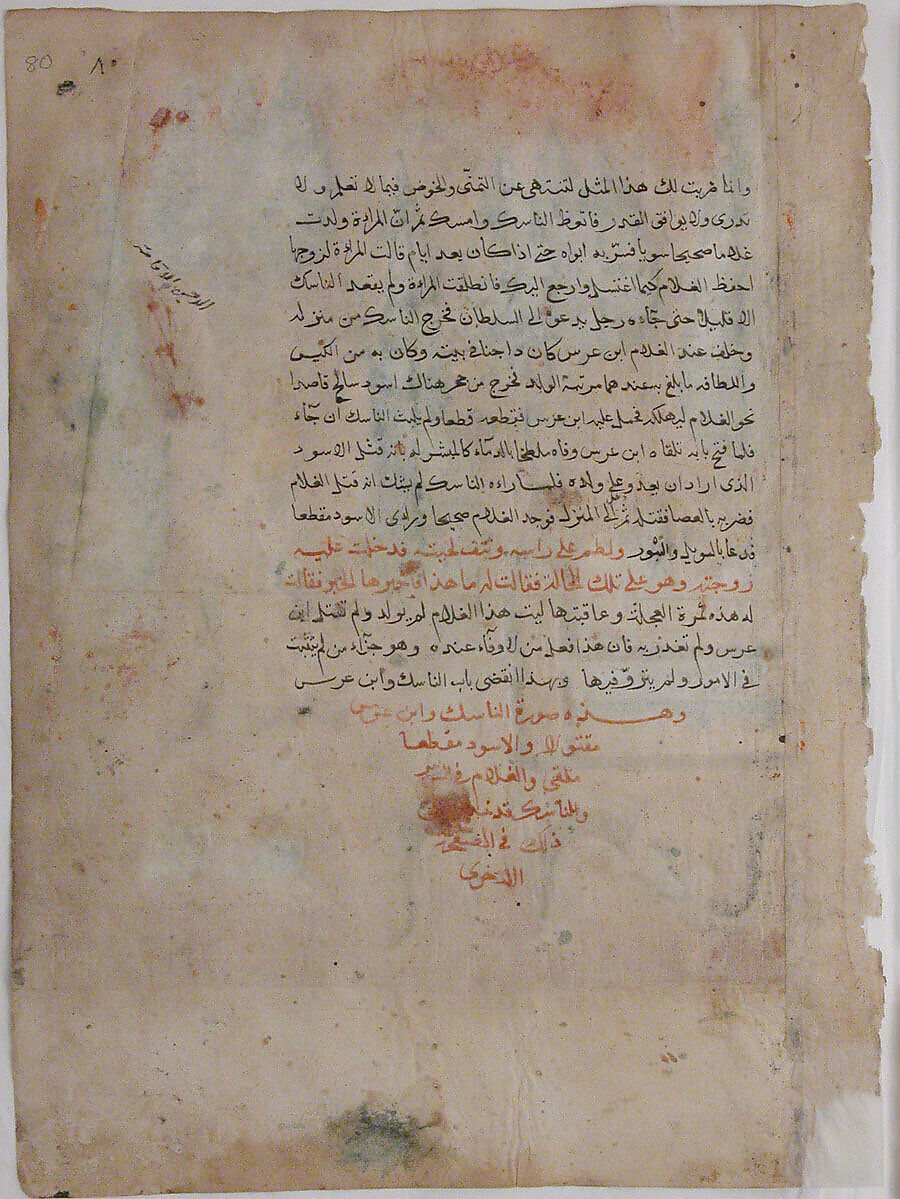 80 ٨٠
وانما ضربت لك هذا المثل لتنتهى عن التمنّى والخوض فيما لا تعلم ولا
تدرى ولا يوافق القدر فاتعظ الناسك وامسك ثم انّ المراءة ولدت
غلاما صحيحا سويا فسرّ به ابواه حتى اذا كان بعد ايام قالت المراءة لزوجها
احفظ الغلام كيما اغتسل وارجع اليك فانطلقت المراءة ولم يقعد الناسك
الا قليلا حتى جآءه رجل يدعوه الى السلطان فخرج الناسك من منزله
وخلف عند الغلام ابن عرس كان داجنا فى بيته وكان به من الكيس
واللطافه ما بلغ به عندهما مرتبة الولد فخرج من جحر هناك اسود سالخ قاصدا
نحو الغلام ليهلكه فحمل عليه ابن عرس فقطعه قطعا ولم يلبث الناسك ان جآء
فلما فتح بابه تلقاه ابن عرس وفاه ملطخا بالدمآء كالمبشر له بانه قتل الاسود
الذى اراد ان يعدو على ولده فلما راءه الناسك لم يشك انه قتل الغلام
فضربه بالعصا فقتله ثم الى المنزل فوجد الغلام صحيحا وراى الاسود مقطعا
فدعا بالويل والثبور ولطم على راسه ونتف لحيته فدخلت عليه
زوجته وهو على تلك الحالة فقالت له ما هذا فاخبرها الخبر فقالت
له هذه ثمرة العجلة وعاقبتها ليت هذا الغلام لم يولد ولم تقتل ابن
عرس ولم تغدر به فان هذا فعل من لا وفآء عنده وهو جزآء من لم يتثبت
فى الامور ولم يتروّ فيها وبهذا انقضى باب الناسك وابن عرس
وهذه صورة الناسك وابن عرس
مقتولا والاسود مقطعا
ملقى والغلام فى السرير
والناسك قد
ذلك فى الصفحة
الاخرى